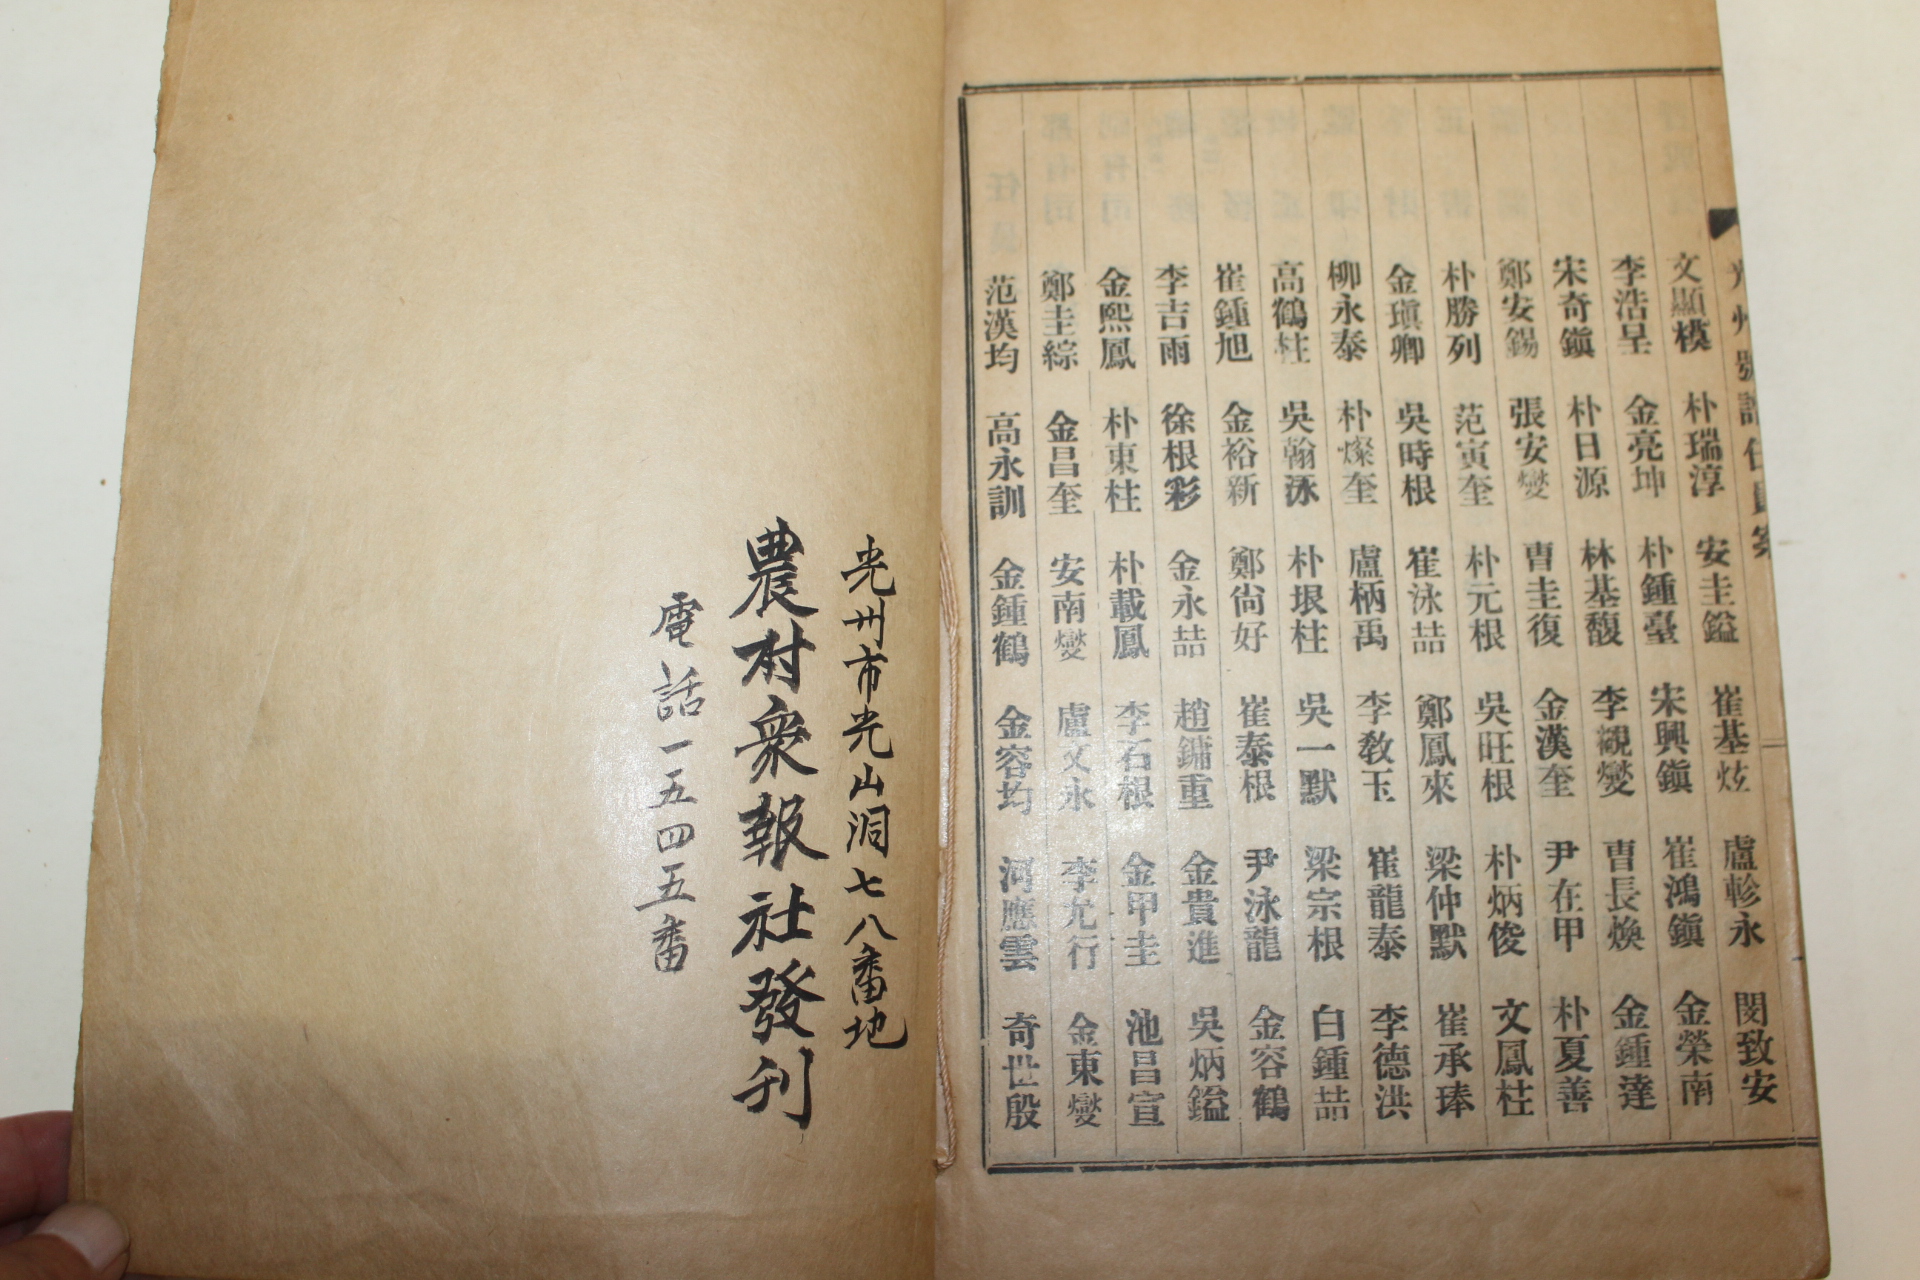 光州號譜任員案
文顯模 朴瑞淳 安圭鎰 崔基炫 盧軫永 閔致安
李浩呈 金亮坤 朴鍾臺 宋興鎭 崔鴻鎭 金榮南
宋奇鎭 朴日源 林基馥 李觀燮 曺長煥 金鍾達
鄭安錫 張安燮 曺圭復 金漢奎 尹在甲 朴夏善
朴勝列 范寅奎 朴元根 吳旺根 朴炳俊 文鳳柱
金瑱卿 吳時根 崔泳喆 鄭鳳來 梁仲默 崔承琫
柳永泰 朴燦奎 盧柄禹 李敎玉 崔龍泰 李德洪
高鶴柱 吳翰泳 朴垠柱 吳一默 梁宗根 白鍾喆
崔鍾旭 金裕新 鄭尙好 崔泰根 尹泳龍 金容鶴
李吉雨 徐根彩 金永喆 趙鏞重 金貴進 吳炳鎰
金熙鳳 朴東柱 朴載鳳 李石根 金甲圭 池昌宣
鄭圭綜 金昌奎 安南燮 盧文永 李尤行 金東燮
范漢均 高永訓 金鍾鶴 金容均 河應雲 奇世殷
光州市光山洞七八番地
農村衆報社發刊
電話一五四五番